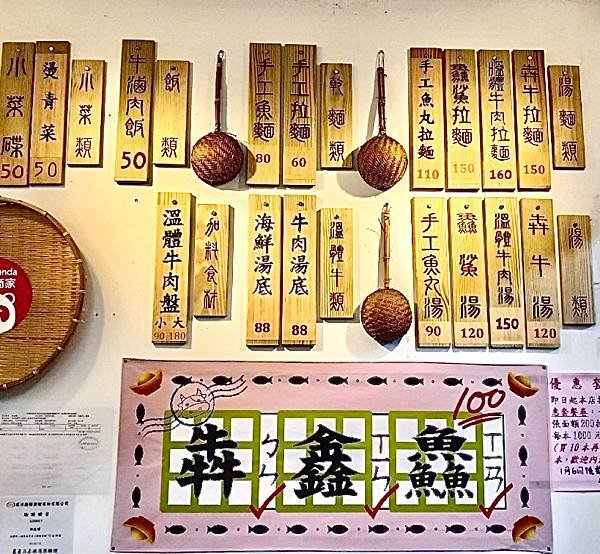 湯麵類
犇牛拉麵
150
溫體牛肉拉麵
160
鱻鯊拉麵
150
手工魚丸拉麵
110
乾麵類
手工拉麵
60
手工魚麵
80
飯類
牛滷肉飯
50
小菜類
燙青菜
50
小菜碟
50
湯類
犇牛湯
120
溫體牛肉湯
150
鱻鯊湯
120
手工魚丸湯
90
溫體牛類
牛肉湯底
88
海鮮湯底
88
加料食材
溫體牛肉盤
小 大
90 180
nda
商家
100
犇 ㄅㄣ 鑫 ㄒㄧㄣ 鱻 ㄒㄧㄢ
優惠套
即日起本店
惠套餐券,
張面額200
每本1000元
(買10本再
本,歡迎內
1月6日